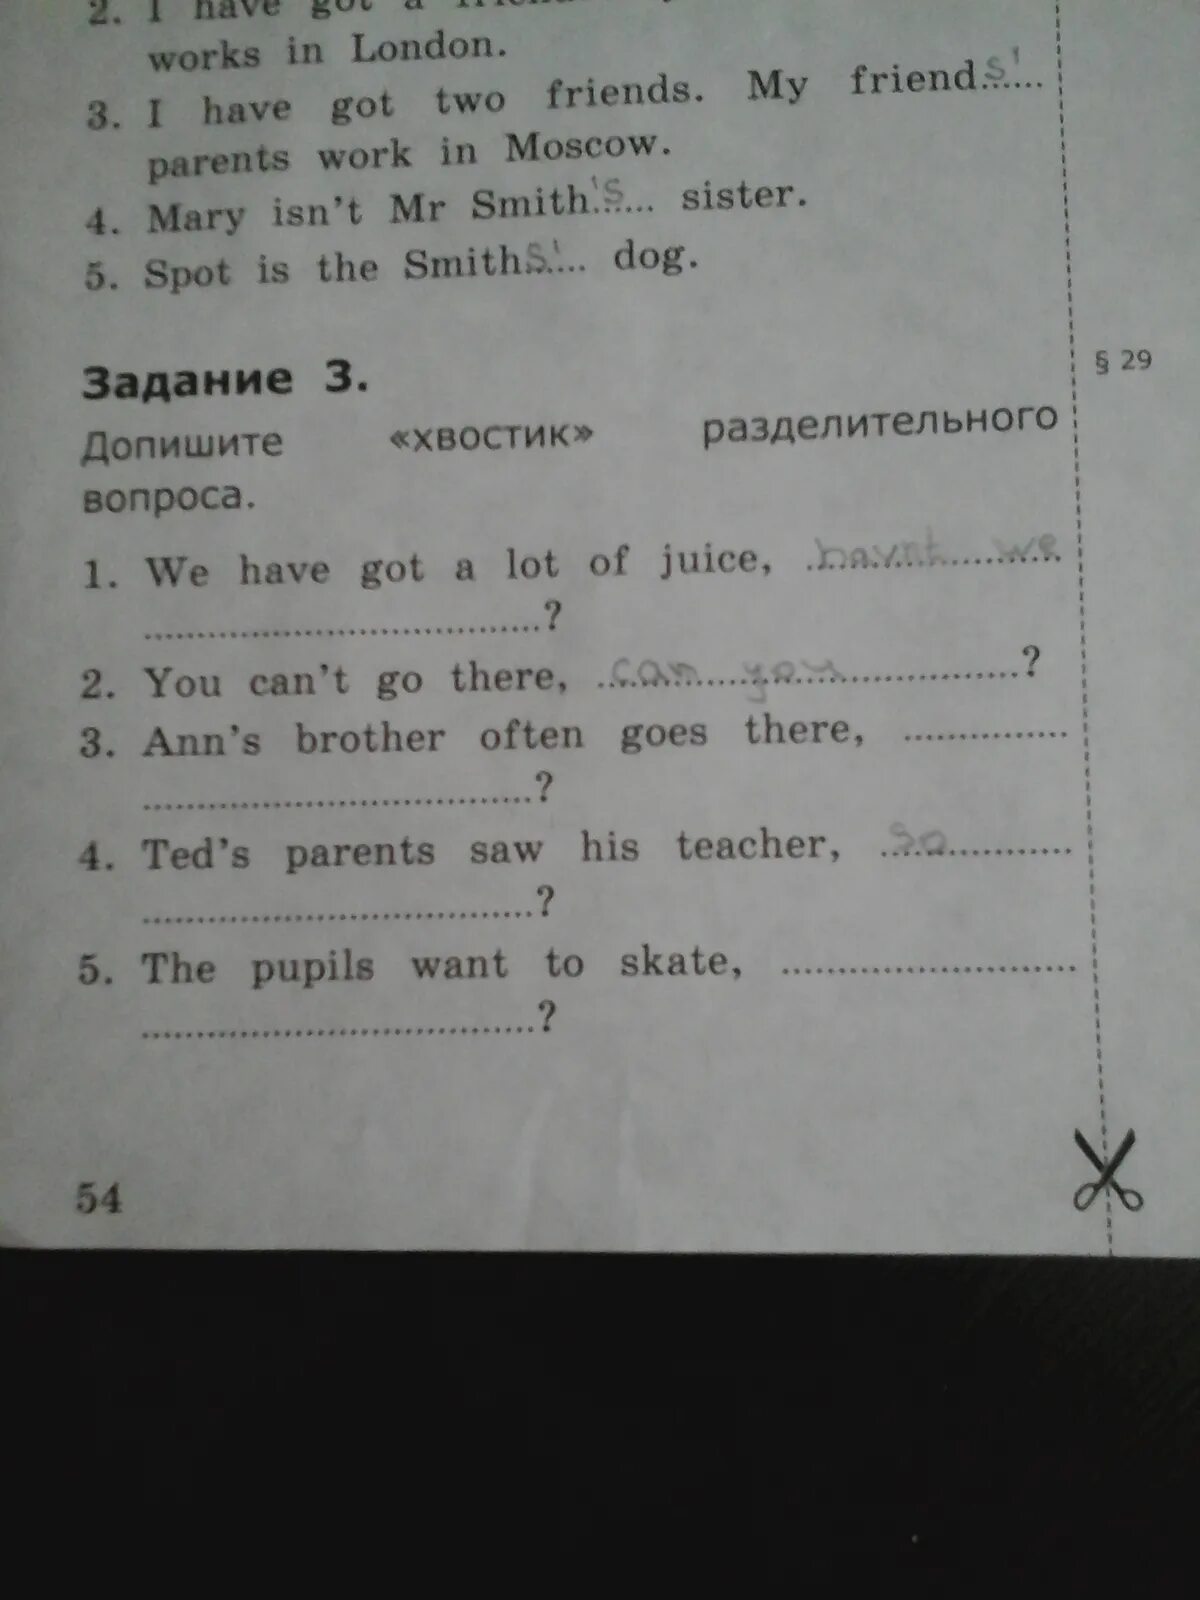 2. I have got a friend
works in London.
3. I have got two friends. My friend.s'....
parents work in Moscow.
4. Mary isn't Mr Smith.'s... sister.
5. Spot is the Smiths'... dog.
Задание 3.
§ 29
Допишите «хвостик» разделительного
вопроса.
1. We have got a lot of juice, havnt we
?
2. You can't go there, can you ?
3. Ann's brother often goes there,
?
4. Ted's parents saw his teacher, So
?
5. The pupils want to skate,
?
54